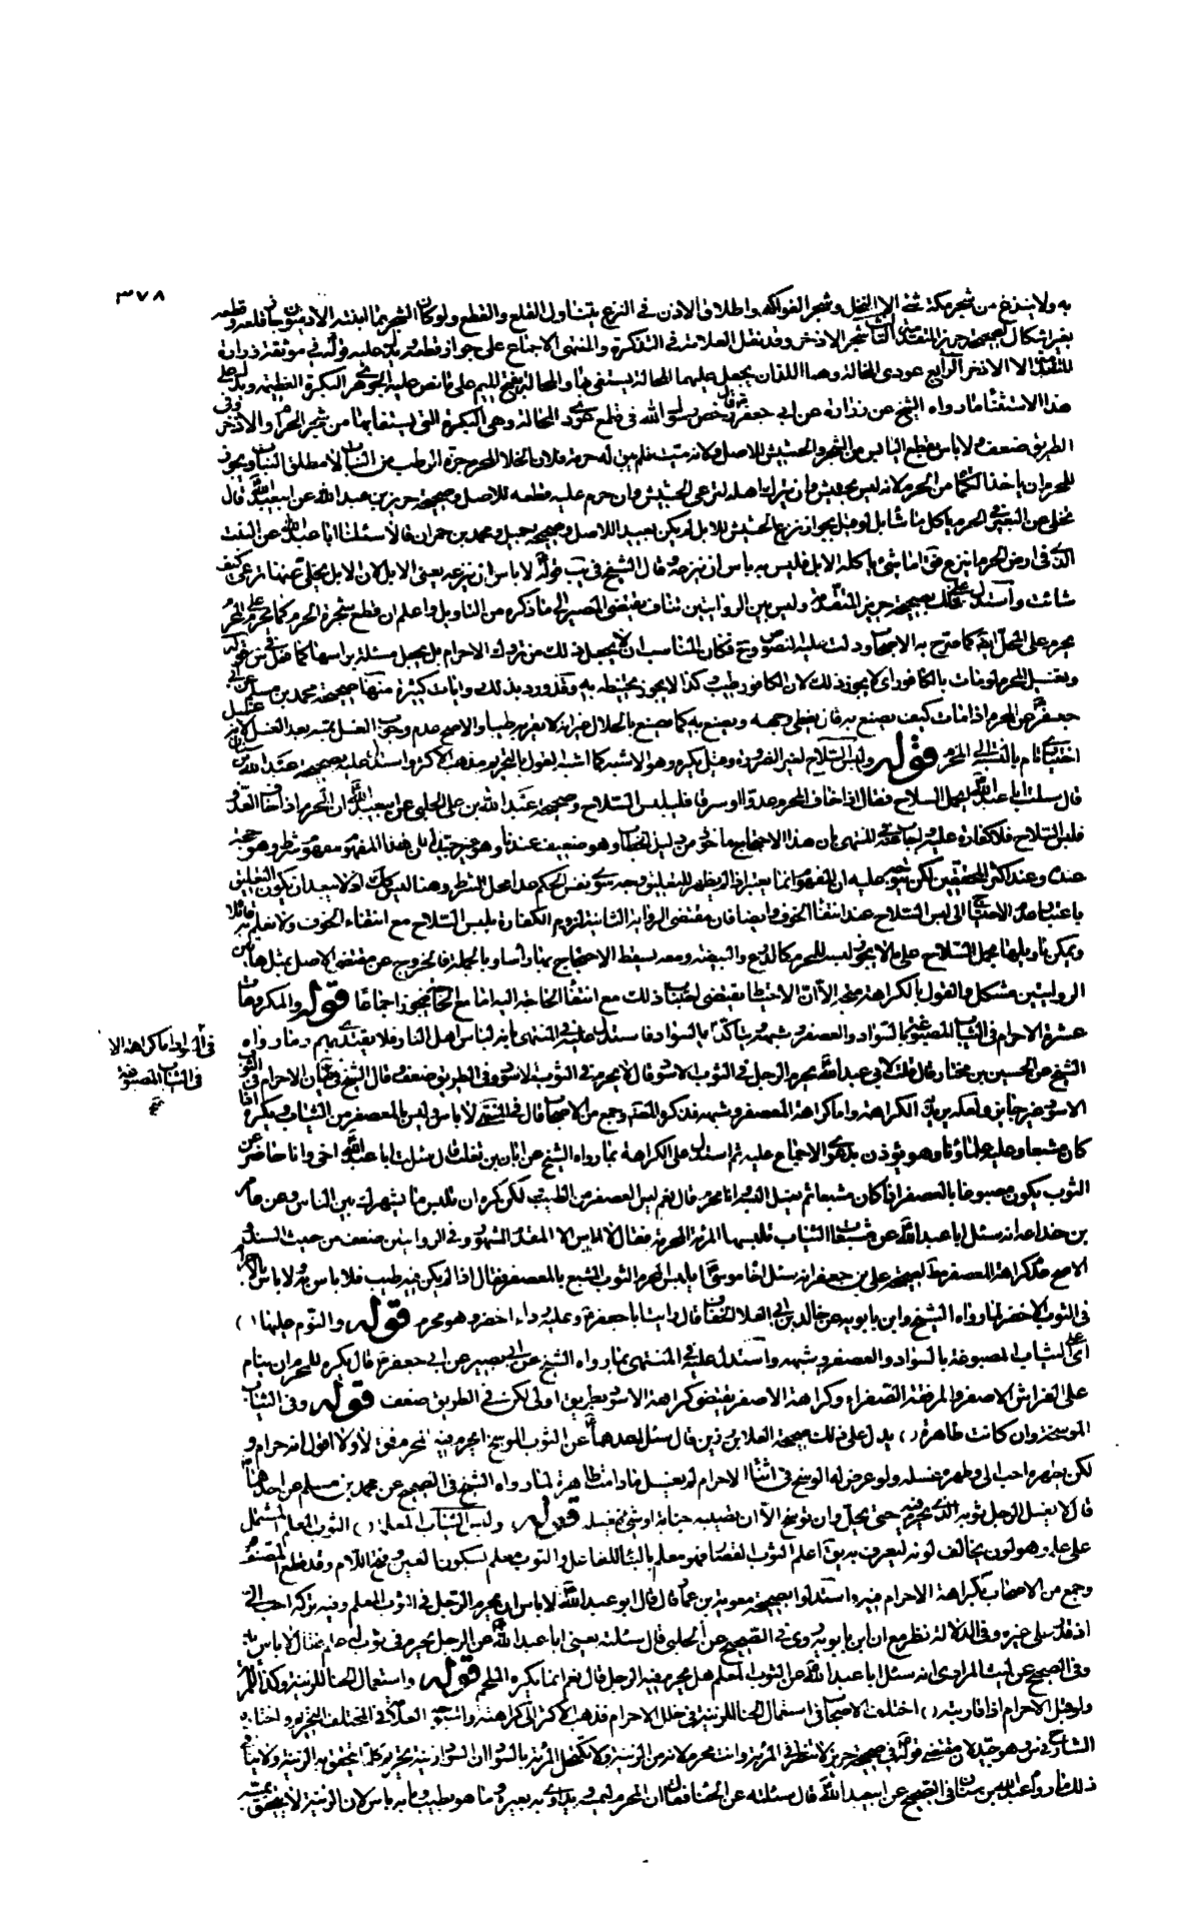 ٣٧٨
به ولا ينزع من شجر مكة شئ الا النخل وشجر الفواكه واطلاق الاذن في النزع يتناول القلع والقطع ولو كان الشجر مما انبته الادميون جاز قلعه وقطعه
بغير اشكال لصحيحة حريز المتقدمة الثالث شجر الاذخر وقد نقل العلامة في التذكرة والمنتهى الاجماع على جواز قطعه ويدل عليه قوله في موثقة زرارة
المتقدمة الا الاذخر الرابع عودى المحالة وهما اللذان يجعل عليهما المحالة ليستقى بها والمحالة بفتح الميم على ما نص عليه الجوهرى البكرة العظيمة ويدل على
هذا الاستثناء ما رواه الشيخ عن زرارة عن ابي جعفر قال رخص رسول الله في قطع عودى المحالة وهى البكرة التى يستقى بها من شجر الحرم والاذخر وفى
الطريق ضعف ولا باس بقطع اليابس من الشجر والحشيش للاصل ولانه ميت فلم يبق له حرمة
للمحرم ان ياخذ الكماة من الحرم لانه ليس بحشيش وان يترك ابله لترعى الحشيش وان حرم عليه قطعه للاصل وصحيحة حريز بن عبد الله عن ابيعبدالله قال
تخلى عن البعير في الحرم ياكل ما شاء بل لو قيل بجواز نزع الحشيش للابل لم يكن بعيدا للاصل وصحيحة جميل ومحمد بن حمران قالا سئلنا ابا عبدالله عن النبت
الذى في ارض الحرم اينزع فق اما شئ ياكله الابل فليس به باس ان تنزعه قال الشيخ في يب قوله لا باس ان تنزعه يعنى الابل لان الابل يخلى عنها ترعى كيف
شائت واستدل على ذلك بصحيحة حريز المتقدمة وليس بين الروايتين تناف يقتضى المصير الى ما ذكره من التاويل واعلم ان قطع شجرة الحرم كما يحرم على المحرم
يحرم على المحل ايضا كما صرح به الاصحاب ودلت عليه النصوص وح فكان المناسب ان لا يجعل ذلك من تروك الاحرام بل يجعل مسئلة براسها كما فعل في س قوله
وتغسيل المحرم لو مات بالكافور اى لا يجوز ذلك لان الكافور طيب وكذا لا يجوز تحنيطه به وقد ورد بذلك روايات كثيرة منها صحيحة محمد بن مسلم عن ابي
جعفر عن المحرم اذا مات كيف يصنع به قال يغطى وجهه ويصنع به كما يصنع بالحلال غير انه لا يقربه طيبا والاصح عدم وجوب الغسل بمسه بعد الغسل لانه غسل
اختيارى تام بالنسبة الى المحرم قوله ولبس السلاح لغير الضرورة وقيل يكره وهو الاشبه كما اشبه القول بالتحريم مذهب الاكثر واستدل عليه بصحيحة عبد الله بن سنان
قال سئلت ابا عبدالله ايحمل السلاح فقال اذا خاف المحرم عدوا او سرقا فليلبس السلاح وصحيحة عبيد الله بن على الحلبى عن ابيعبدالله ان المحرم اذا خاف العدو
فلبس السلاح فلا كفارة عليه
عنده وعند اكثر المحققين لكن يتوجه عليه ان المفهوم انما يعتبر اذا لم يظهر للتعليق وجه سوى نفى الحكم عدا محل الشرط وهنا ليس كذلك اذ لا يبعد ان يكون التعليق
باعتبار عدم الاحتياج الى لبس السلاح عند انتفاء الخوف وايضا فان مقتضى الرواية الثانية لزوم الكفارة بلبس السلاح مع انتفاء الخوف ولا نعلم به قائلا
ويمكن تاويلها بحمل السلاح على ما لا يجوز لبسه للمحرم كالدرع والبيضة ومعه يسقط الاحتجاج بها راسا وبالجملة فالخروج عن مقتضى الاصل بمثل هاتين
الروايتين مشكل والقول بالكراهة متجه الا ان الاحتياط يقتضى اجتناب ذلك مع انتفاء الحاجة اليه اما مع الحاجة فيجوز اجماعا قوله والمكروهات
عشرة الاحرام في الثياب المصبوغة بالسواد والعصفر وشبهه ويتاكد بالسواد فاستدل عليه في المنتهى بانه لباس اهل النار فلا يقتدى بهم وما رواه
الشيخ عن الحسين بن مختار قال قلت لابي عبدالله يحرم الرجل في الثوب الاسود قال لا يحرم في الثوب الاسود وفى الطريق ضعف وقال الشيخ في ية لا يجوز الاحرام في الثوب
الاسود
كان مشبعا وعليه علماؤنا وهو يؤذن بدعوى الاجماع عليه ثم استدل على الكراهة بما رواه الشيخ عن ابان بن تغلب قال سئلت ابا عبدالله اخى وانا حاضر عن
الثوب يكون مصبوغا بالعصفر اذا كان مشبعا ثم يغسل البسه وانا محرم قال نعم ليس العصفر من الطيب لكن اكره ان تلبس ما يشهرك به بين الناس وعن عامر
بن خداعة انه سئل ابا عبدالله عن مشبعات الثياب تلبسها المرئة المحرمة فقال لا باس الا المفدم المشهور وفى الروايتين ضعف من حيث السند و
الاصح عدم كراهة المعصفر مط لصحيحة على بن جعفر انه سئل اخا موسى يلبس المحرم الثوب المشبع بالعصفر فقال اذا لم يكن فيه طيب فلا باس به ولا باس بالاحرام
في الثوب الاخضر لما رواه الشيخ وابن بابويه عن خالد بن ابي العلاء الخفاف قال رايت ابا جعفر وعليه برد اخضر وهو محرم قوله والنوم عليها ( )
اى على الثياب المصبوغة بالسواد والعصفر وشبهه واستدل عليه في المنتهى بما رواه الشيخ عن ابي بصير عن ابي جعفر قال يكره للمحرم ان ينام
على الفراش الاصفر والمرفقة الصفراء وكراهة الاصفر يقتضى كراهة الاسود بطريق اولى لكن في الطريق ضعف قوله وفى الثياب
الوسخة وان كانت طاهرة ( ) يدل على ذلك صحيحة العلا بن رزين قال سئل احدهما عن الثوب الوسخ ايحرم فيه المحرم فق لا ولا اقول انه حرام و
لكن يطهره احب الى وطهره غسله ولو عرض له الوسخ في اثناء الاحرام لم يغسل ما دام طاهرا لما رواه الشيخ في الصحيح عن محمد بن مسلم عن احدهما
قال لا يغسل الرجل ثوبه الذى يحرم فيه حتى يحل وان توسخ الا ان يصيبه جنابة او شئ فيغسله قوله ولبس الثياب المعلمة ( ) الثوب المعلم المشتمل
على علم وهو لون يخالف لونه ليعرف به يق اعلم الثوب القصار فهو معلم بالبناء للفاعل والثوب معلم بسكون العين وفتح اللام وقد قطع المصنف
وجمع من الاصحاب بكراهة الاحرام فيه واستدلوا بصحيحة معوية بن عمار قال قال ابو عبدالله لا باس ان يحرم الرجل في الثوب المعلم وفيه تركه احب الى
اذ قدر على غيره وفى الدلالة نظر مع ان ابن بابويه روى في الصحيح عن الحلبى قال سئلته يعنى ابا عبدالله عن الرجل يحرم في ثوب له علم فقال لا باس به
وفى الصحيح عن ليث المرادى انه سئل ابا عبدالله عن الثوب المعلم هل يحرم فيه الرجل قال نعم انما يكره الملحم قوله واستعمال الحنا للزينة وكذا للمرئة
ولو قبل الاحرام اذا قارنته ( ) اختلف الاصحاب في استعمال الحنا للزينة في خلال الاحرام فذهب الاكثر الى كراهته واستوجه العلامة في المختلف التحريم واختاره
الشارح في س وهو جيد لان مقتضى قوله في صحيحة حريز لا تنظر في المرئة وانت محرم لانه من الزينة ولا تكتحل المرئة بالسواد ان السواد زينة تحريم كلما يتحقق به الزينة ولا ينافى
ذلك ما رواه عبدالله بن سنان في الصحيح عن ابيعبدالله قال سئلته عن الحنا فقال ان المحرم ليمسه ويداوى به بعيره وما هو بطيب وما به باس لان الزينة لا يتحقق بمسه
في الثياب المصبوغة